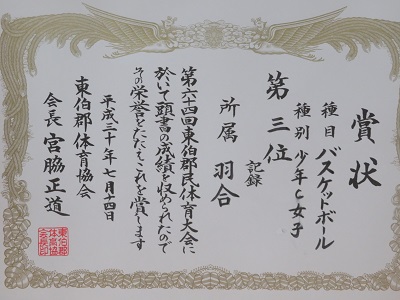 賞状
種目 バスケットボール
種別 少年C女子
第三位
記録
所属 羽合
第六十四回東伯郡民体育大会に
於いて頭書の成績を収められたので
その栄誉をたたえこれを賞します
平成三十年七月十四日
東伯郡体育協会
会長 宮脇正道
東伯郡
体育協
会長印